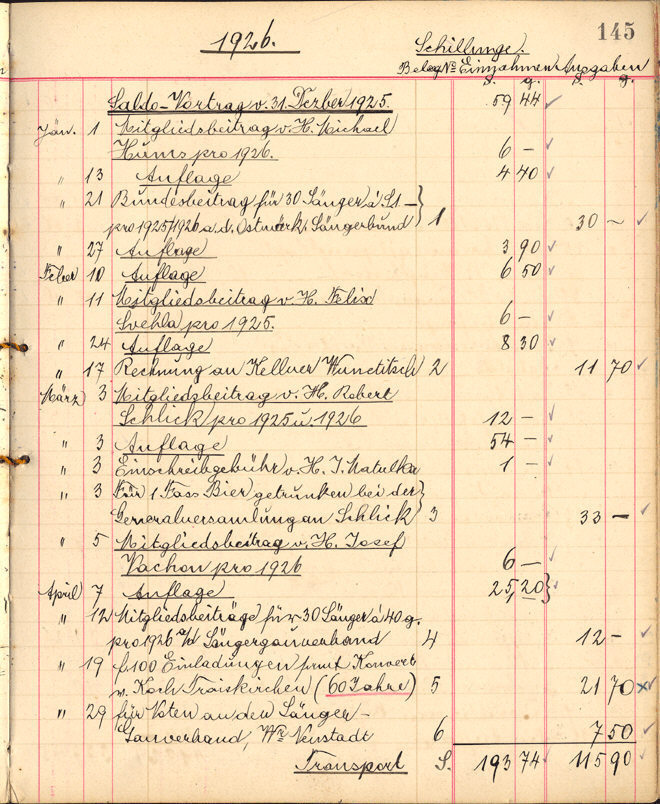 145
1926.
Schillinge.
Beleg No Einnahmen Ausgaben
S. g. S. g.
Saldo-Vortrag v. 31. Dezber 1925. 59 44
Jän. 1 Mitgliedsbeitrag v. H. Michael
pro 1926. 6 —
" 13 Auflage 4 40
" 21 Bundesbeitrag für 30 Sänger á S 1 —
pro 1925/1926 a. d. Ostmärk. Sängerbund 1 30 —
" 27 Auflage 3 90
Feber 10 Auflage 6 50
" 11 Mitgliedsbeitrag v. H. Felix
Svehla pro 1925. 6 —
" 24 Auflage 8 30
" 17 Rechnung an Kellner Wunctitsch 2 11 70
März 3 Mitgliedsbeitrag v. H. Robert
Schlick pro 1925 u. 1926 12 —
" 3 Auflage 54 —
" 3 Einschreibgebühr v. H. J. Matulka 1 —
" 3 Für 1 Fass Bier getrunken bei der
Generalversamlung an Schlick 3 33 —
" 5 Mitgliedsbeitrag v. H. Josef
Vachon pro 1926 6 —
April 7 Auflage 25,20
" 12 Mitgliedsbeiträge für 30 Sänger á 40 g.
pro 1926 Sängergauverband 4 12 —
" 19 f. 100 Einladungen samt Konvert
v. Koch Traiskirchen (60 Jahre) 5 21 70
" 29 für Noten an den Sänger-
Gauverband, Wr. Neustadt 6 7 50
Transport S. 193 74 115 90